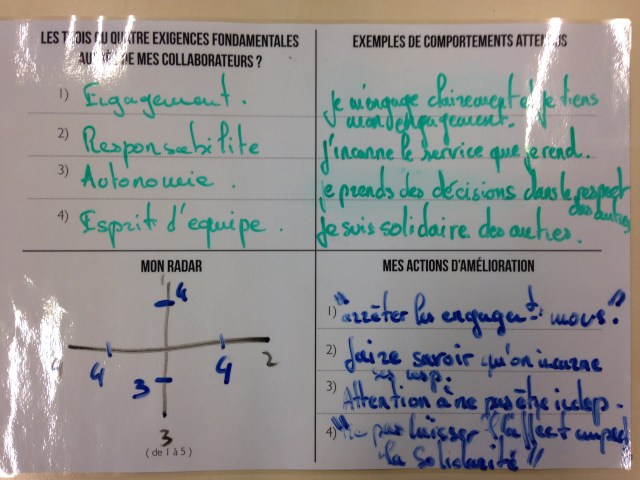 LES TROIS OU QUATRE EXIGENCES FONDAMENTALES
AUPRÈS DE MES COLLABORATEURS ?
1) Engagement.
2) Responsabilite
3) Autonomie.
4) Esprit d'equipe.
EXEMPLES DE COMPORTEMENTS ATTENDUS
je m'engage clairement et je tiens
mon engagement.
j'incarne le service que je rend.
je prends des décisions dans le respect
des autres
je suis solidaire des autres.
MON RADAR
1
4
4
4
4
2
3
3
(de 1 à 5)
MES ACTIONS D'AMÉLIORATION
1) "arrêter les engagent mous."
2) faire savoir qu'on incarne
ses resp.
3) Attention à ne pas être indep.
4) "Ne pas laisser l'affect
la solidarité"